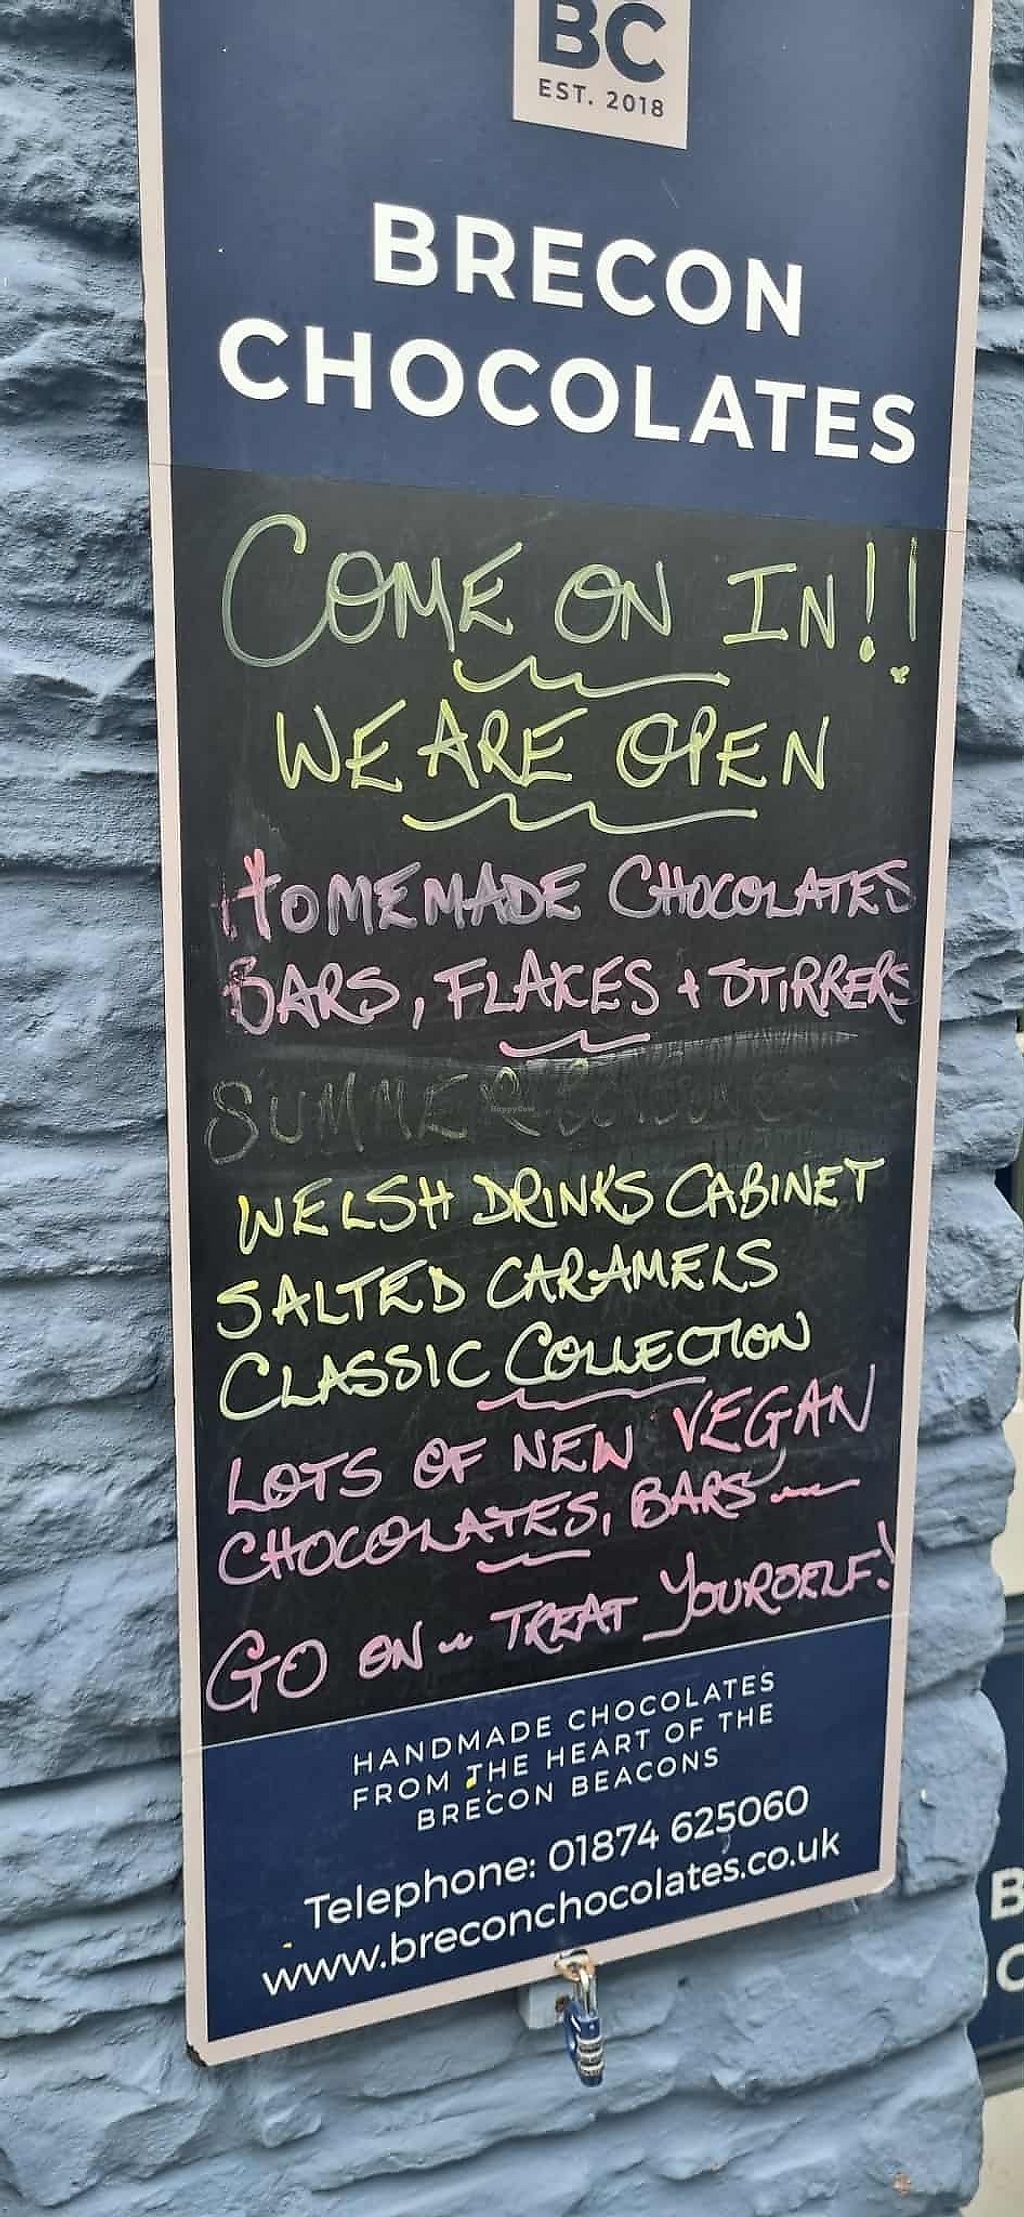 BC
EST. 2018
BRECON
CHOCOLATES
COME ON IN!!
WE ARE OPEN
HOMEMADE CHOCOLATES
BARS, FLAKES + STIRRERS
SUMMER
HappyCow
WELSH DRINKS CABINET
SALTED CARAMELS
CLASSIC COLLECTION
LOTS OF NEW VEGAN
CHOCOLATES, BARS
GO ON .. TREAT YOURSELF!
HANDMADE CHOCOLATES
FROM THE HEART OF THE
BRECON BEACONS
Telephone: 01874 625060
www.breconchocolates.co.uk